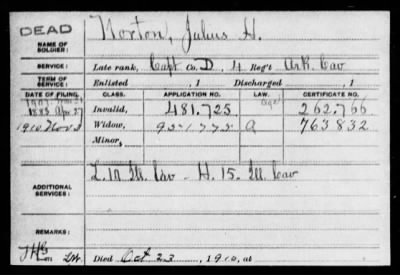 DEAD
NAME OF SOLDIER: Norton, Julius H.
SERVICE: Late rank, Capt Co. D, 4 Reg't Ark. Cav
TERM OF SERVICE: Enlisted , 1 Discharged , 1
DATE OF FILING. CLASS. APPLICATION NO. LAW. CERTIFICATE NO.
1883 Apr 27 Invalid, 481.725 Age 262.766
1910 Nov 3 Widow, A 763832
Minor,
ADDITIONAL SERVICES: L. 12 Ill. Cav - H. 15. Ill. Cav
REMARKS:
Died Oct 23, 1910, at